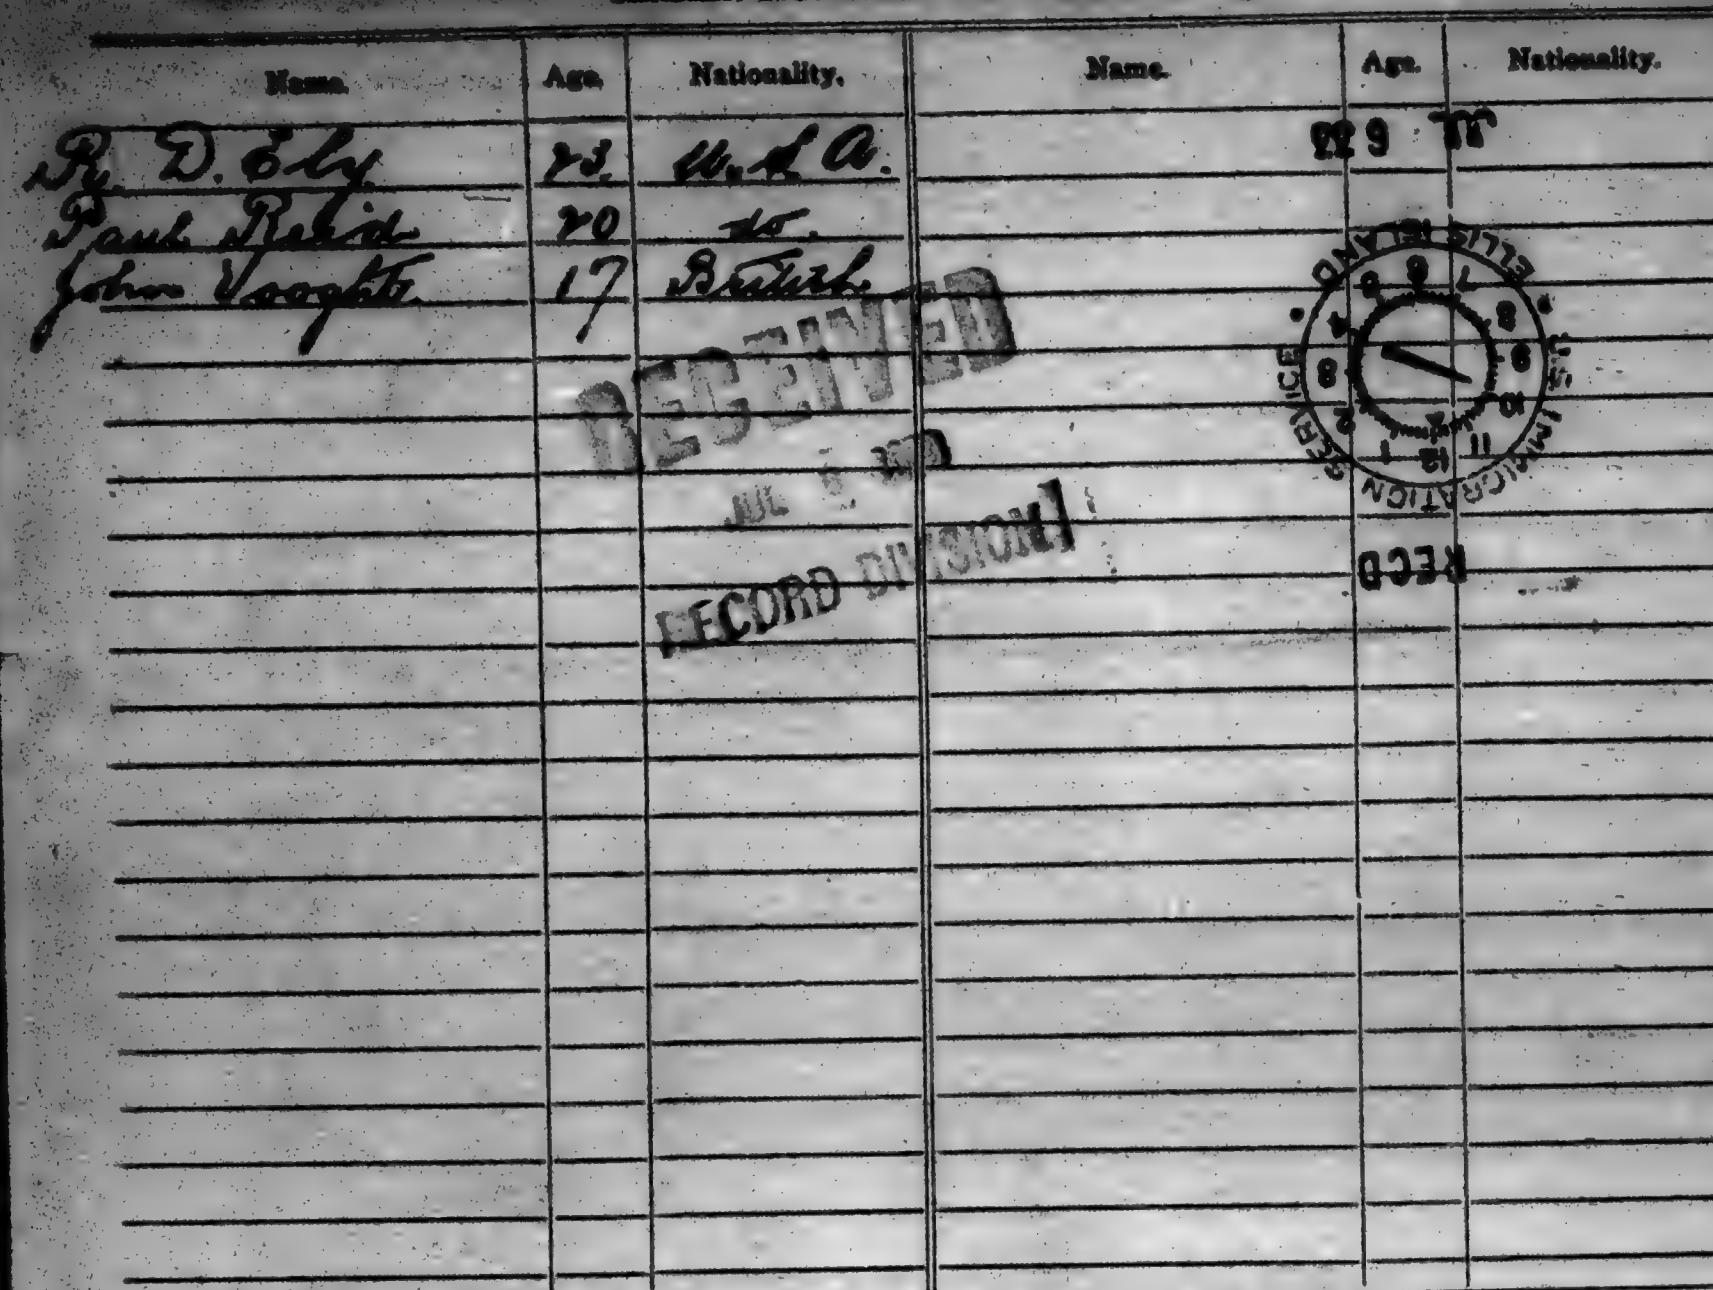 Name. Age. Nationality. Name. Age. Nationality.
R. D. Ely 23. U. S A.
Paul Reid 20 do.
John Vooght 17 British
RECEIVED
JUL 6
RECORD DIVISION
JUL 6
ELLIS ISLAND
U.S. IMMIGRATION SERVICE
1 2 3 4 5 6 7 8 9 10 11 12
RECD